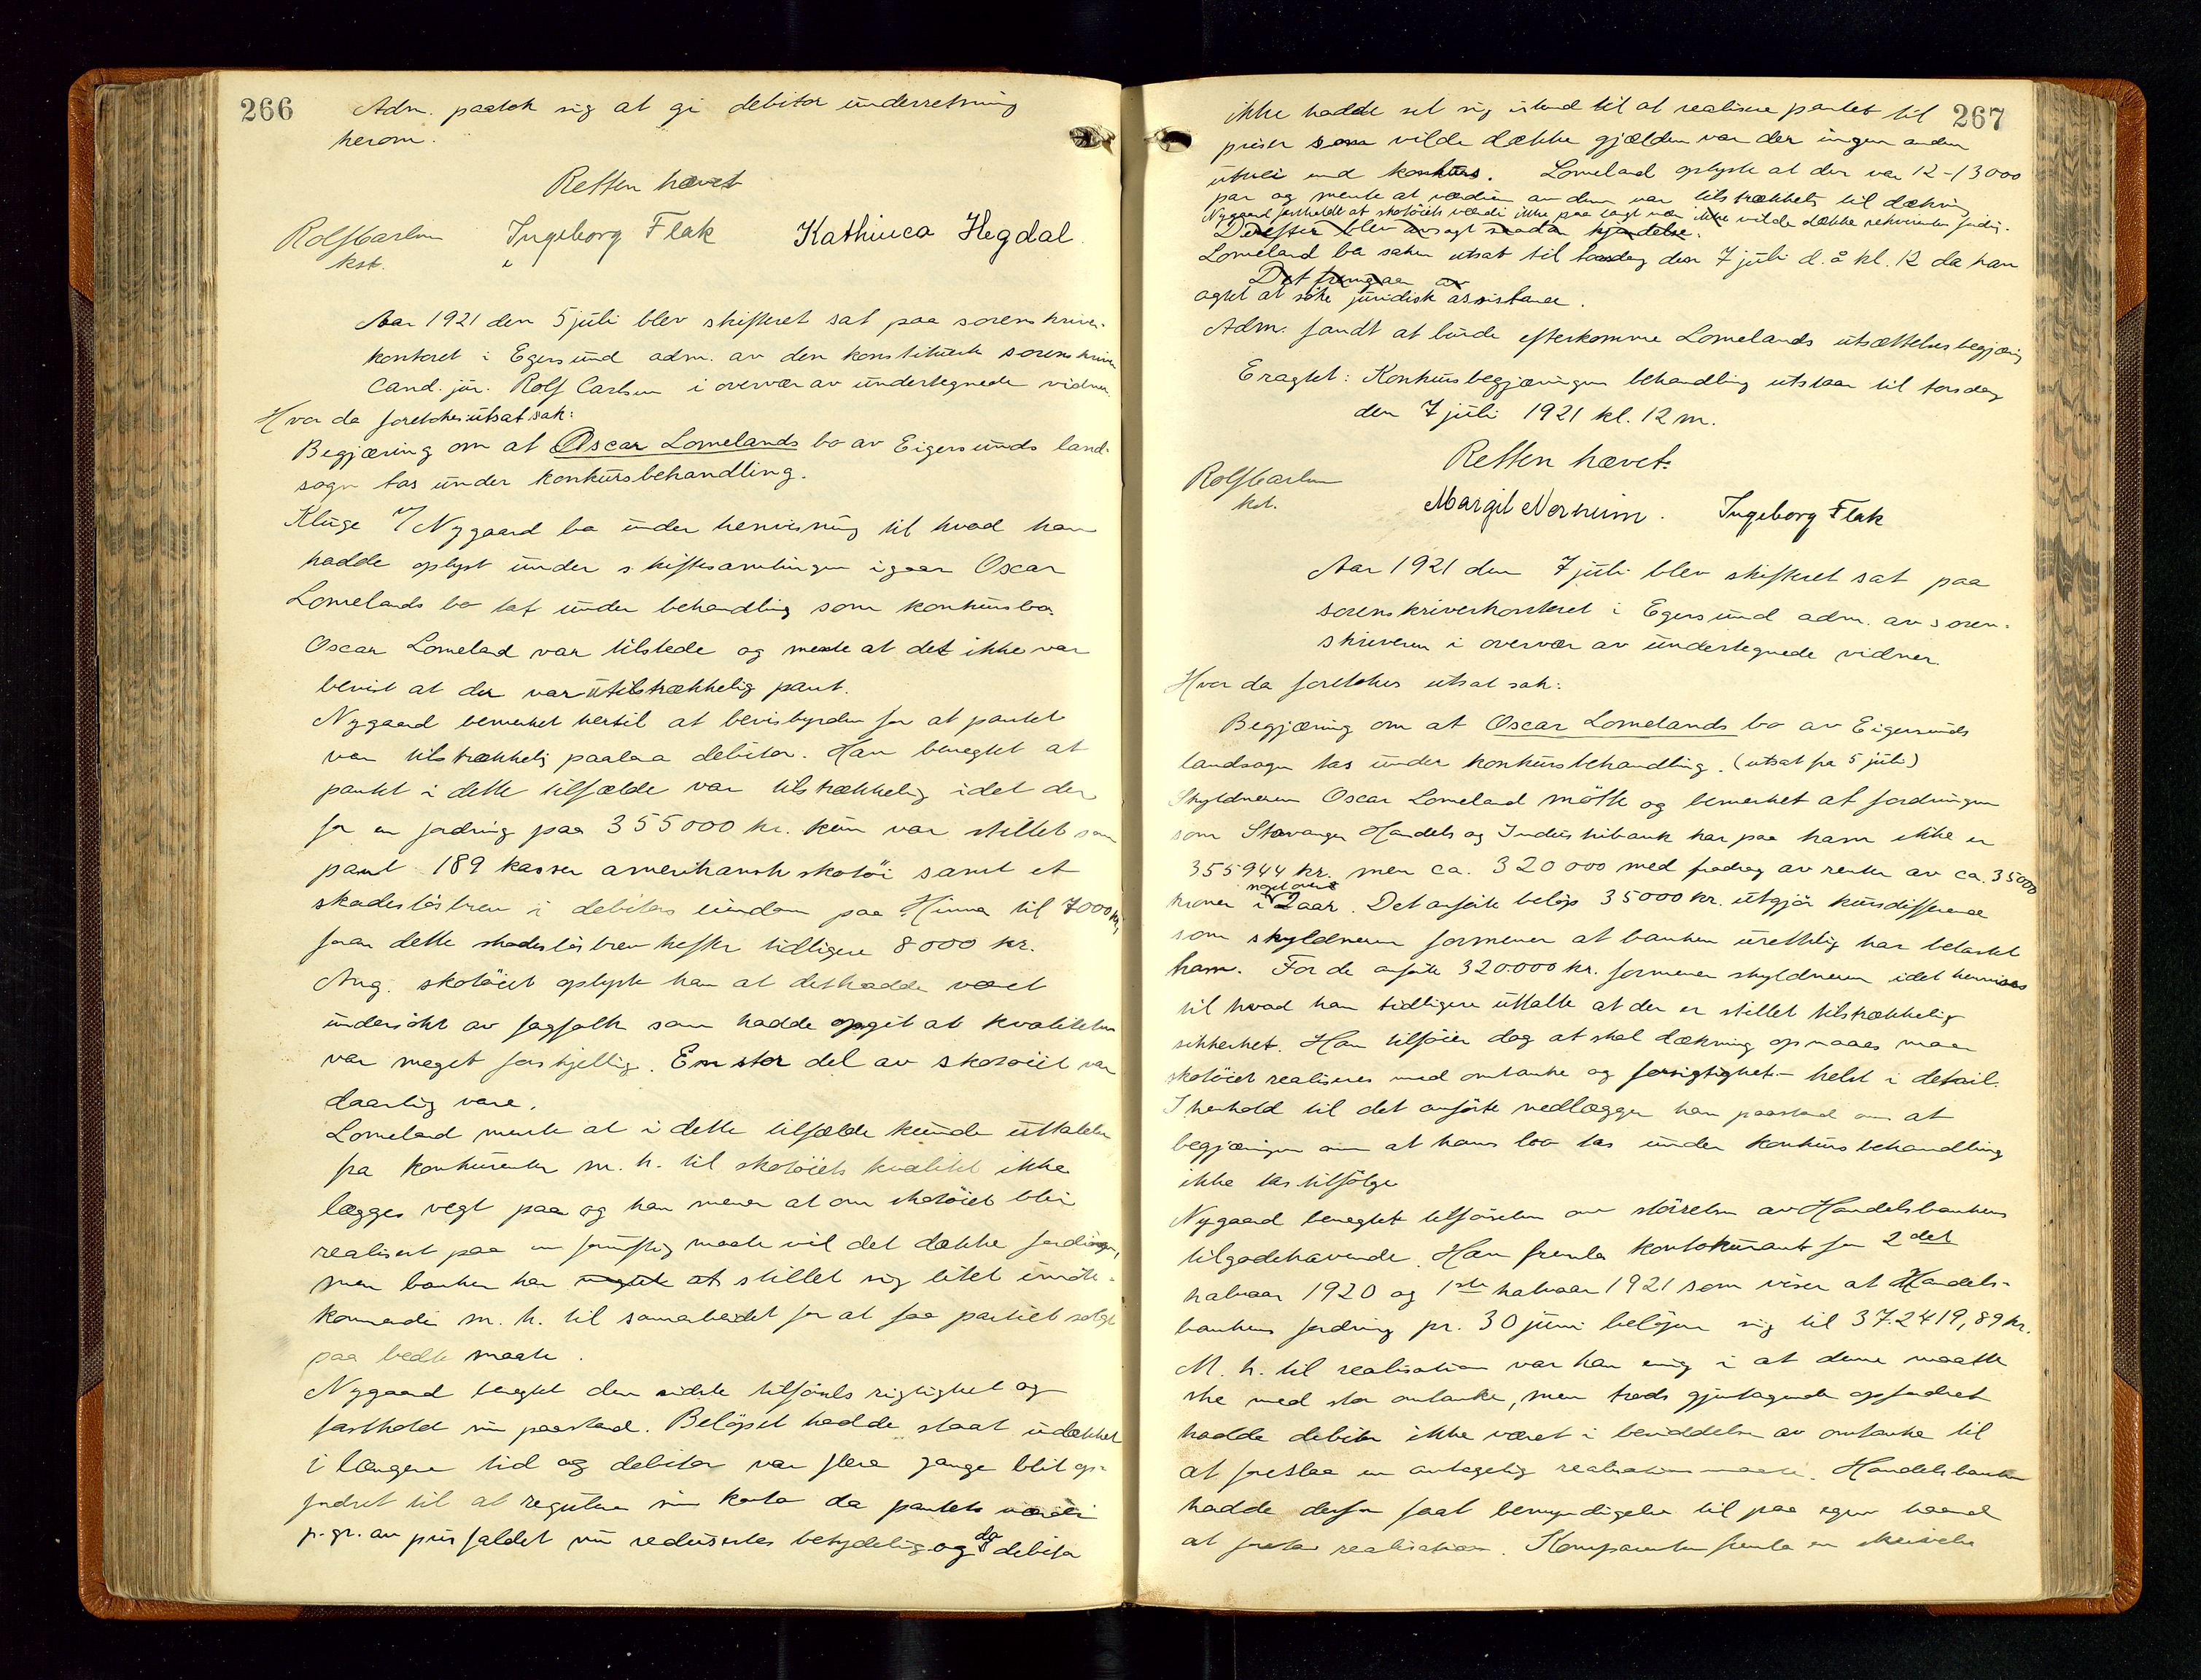 266
Adm. paatok sig at gi debitor underretning
herom.
Retten hævet
Rolf Carlsen Ingeborg Flak Kathinca Hegdal
kst.
Aar 1921 den 5 juli blev skifteret sat paa sorenskriver-
kontoret i Egersund adm. av den konstituerte sorenskriver
Cand. jur. Rolf Carlsen i overvær av undertegnede vidner.
Hvor da foretokes utsat sak:
Begjæring om at Oscar Lomelands bo av Eigersunds land-
sogn tas under konkursbehandling.
Kluge v/Nygaard ba under henvisning til hvad han
hadde oplyst under skiftesamlingen igaar Oscar
Lomelands bo tat under behandling som konkursbo.
Oscar Lomeland var tilstede og mente at det ikke var
bevist at der var utilstrækkelig pant.
Nygaard bemerket hertil at bevisbyrden for at pantet
var tilstrækkelig paalaa debitor. Han benegtet at
pantet i dette tilfælde var tilstrækkelig idet der
for en fordring paa 355000 kr. kun var stillet som
pant 189 kasser amerikansk skotöi samt et
skadeslösbrev i debitors eiendom paa Hinna til 7000 kr,
foran dette skadeslösbrev hefter tidligere 8000 kr.
Ang. skotöiet oplyste han at det hadde været
undersökt av fagfolk som hadde opgit at kvaliteten
var meget forskjellig. En stor del av skotöiet var
daarlig vare.
Lomeland mente at i dette tilfælde kunde uttalelser
fra konkurenter m. h. til skotöiets kvalitet ikke
lægges vegt paa og han mener at om skotöiet blir
realisert paa en fornuftig maate vil det dække fordringen,
men banken har at stillet sig litet imöte-
kommende m. h. til samarbeidet for at faa partiet solgt
paa bedste maate.
Nygaard benegtet den sidste tilförsels rigtighet og
fastholdt sin paastand. Belöpet hadde staat udækket
i længere tid og debitor var flere gange blit op-
fordret til at regulere sin konto da pantets værdi
p. gr. av prisfaldet nu redusertes betydelig og da debitor
267
ikke hadde set sig istand til at realisere pantet til
priser som vilde dække gjælden var der ingen anden
utvei end konkurs. Lomeland oplyste at der var 12-13000
par og mente at værdien av dem var tilstrækkelig til dækning
Nygaard fastholdt at skotöiets værdi ikke paa langt nær ikke vilde dække rekvirentens fordr.
Derefter blev avsagt saadan kjendelse.
Lomeland ba saken utsat til torsdag den 7 juli d. å kl. 12 da han
Det fremgaar av
agtet at söke juridisk assistance.
Adm. fandt at burde efterkomme Lomelands utsættelsesbegjæring
Eragtet: Konkursbegjæringens behandling utstaar til torsdag
den 7 juli 1921 kl. 12 m.
Retten hævet.
Rolf Carlsen
kst.
Margit Nernum. Ingeborg Flak
Aar 1921 den 7 juli blev skifteret sat paa
sorenskriverkontoret i Egersund adm. av soren-
skriveren i overvær av undertegnede vidner.
Hvor da foretokes utsat sak:
Begjæring om at Oscar Lomelands bo av Eigersunds
landsogn tas under konkursbehandling. (utsat fra 5 juli)
Skyldneren Oscar Lomeland mötte og bemerket at fordringen
som Stavanger Handels og Industribank har paa ham ikke er
355944 kr. men ca. 320000 med fradrag av renter av ca. 35000
kroner i noget over 2 aar. Det anförte belöp 35000 kr. utgjör kursdifferense
som skyldneren formener at banken urettelig har belastet
ham. For de anförte 320.000 kr. formener skyldneren idet henvises
til hvad han tidligere uttalte at der er stillet tilstrækkelig
sikkerhet. Han tilföier dog at skal dækning opnaaes maa
skotöiet realiseres med omtanke og forsigtighet - helst i detail.
I henhold til det anförte nedlægger han paastand om at
begjæringen om at hans bo tas under konkursbehandling
ikke tas tilfölge
Nygaard benegtet tilförselen om störrelsen av Handelsbankens
tilgodehavende. Han fremla kontokurant for 2det
halvaar 1920 og 1ste halvaar 1921 som viser at Handels-
bankens fordring pr. 30 juni belöper sig til 372419,89 kr.
M. h. til realisation var han enig i at denne maatte
ske med stor omtanke, men trods gjentagende opfordret
hadde debitor ikke været i besiddelse av omtanke til
at foreslaa en antagelig realisationsmaate. Handelsbanken
hadde derfor faat bemyndigelse til paa egen haand
at foreta realisation. Komparenten fremla en skrivelse